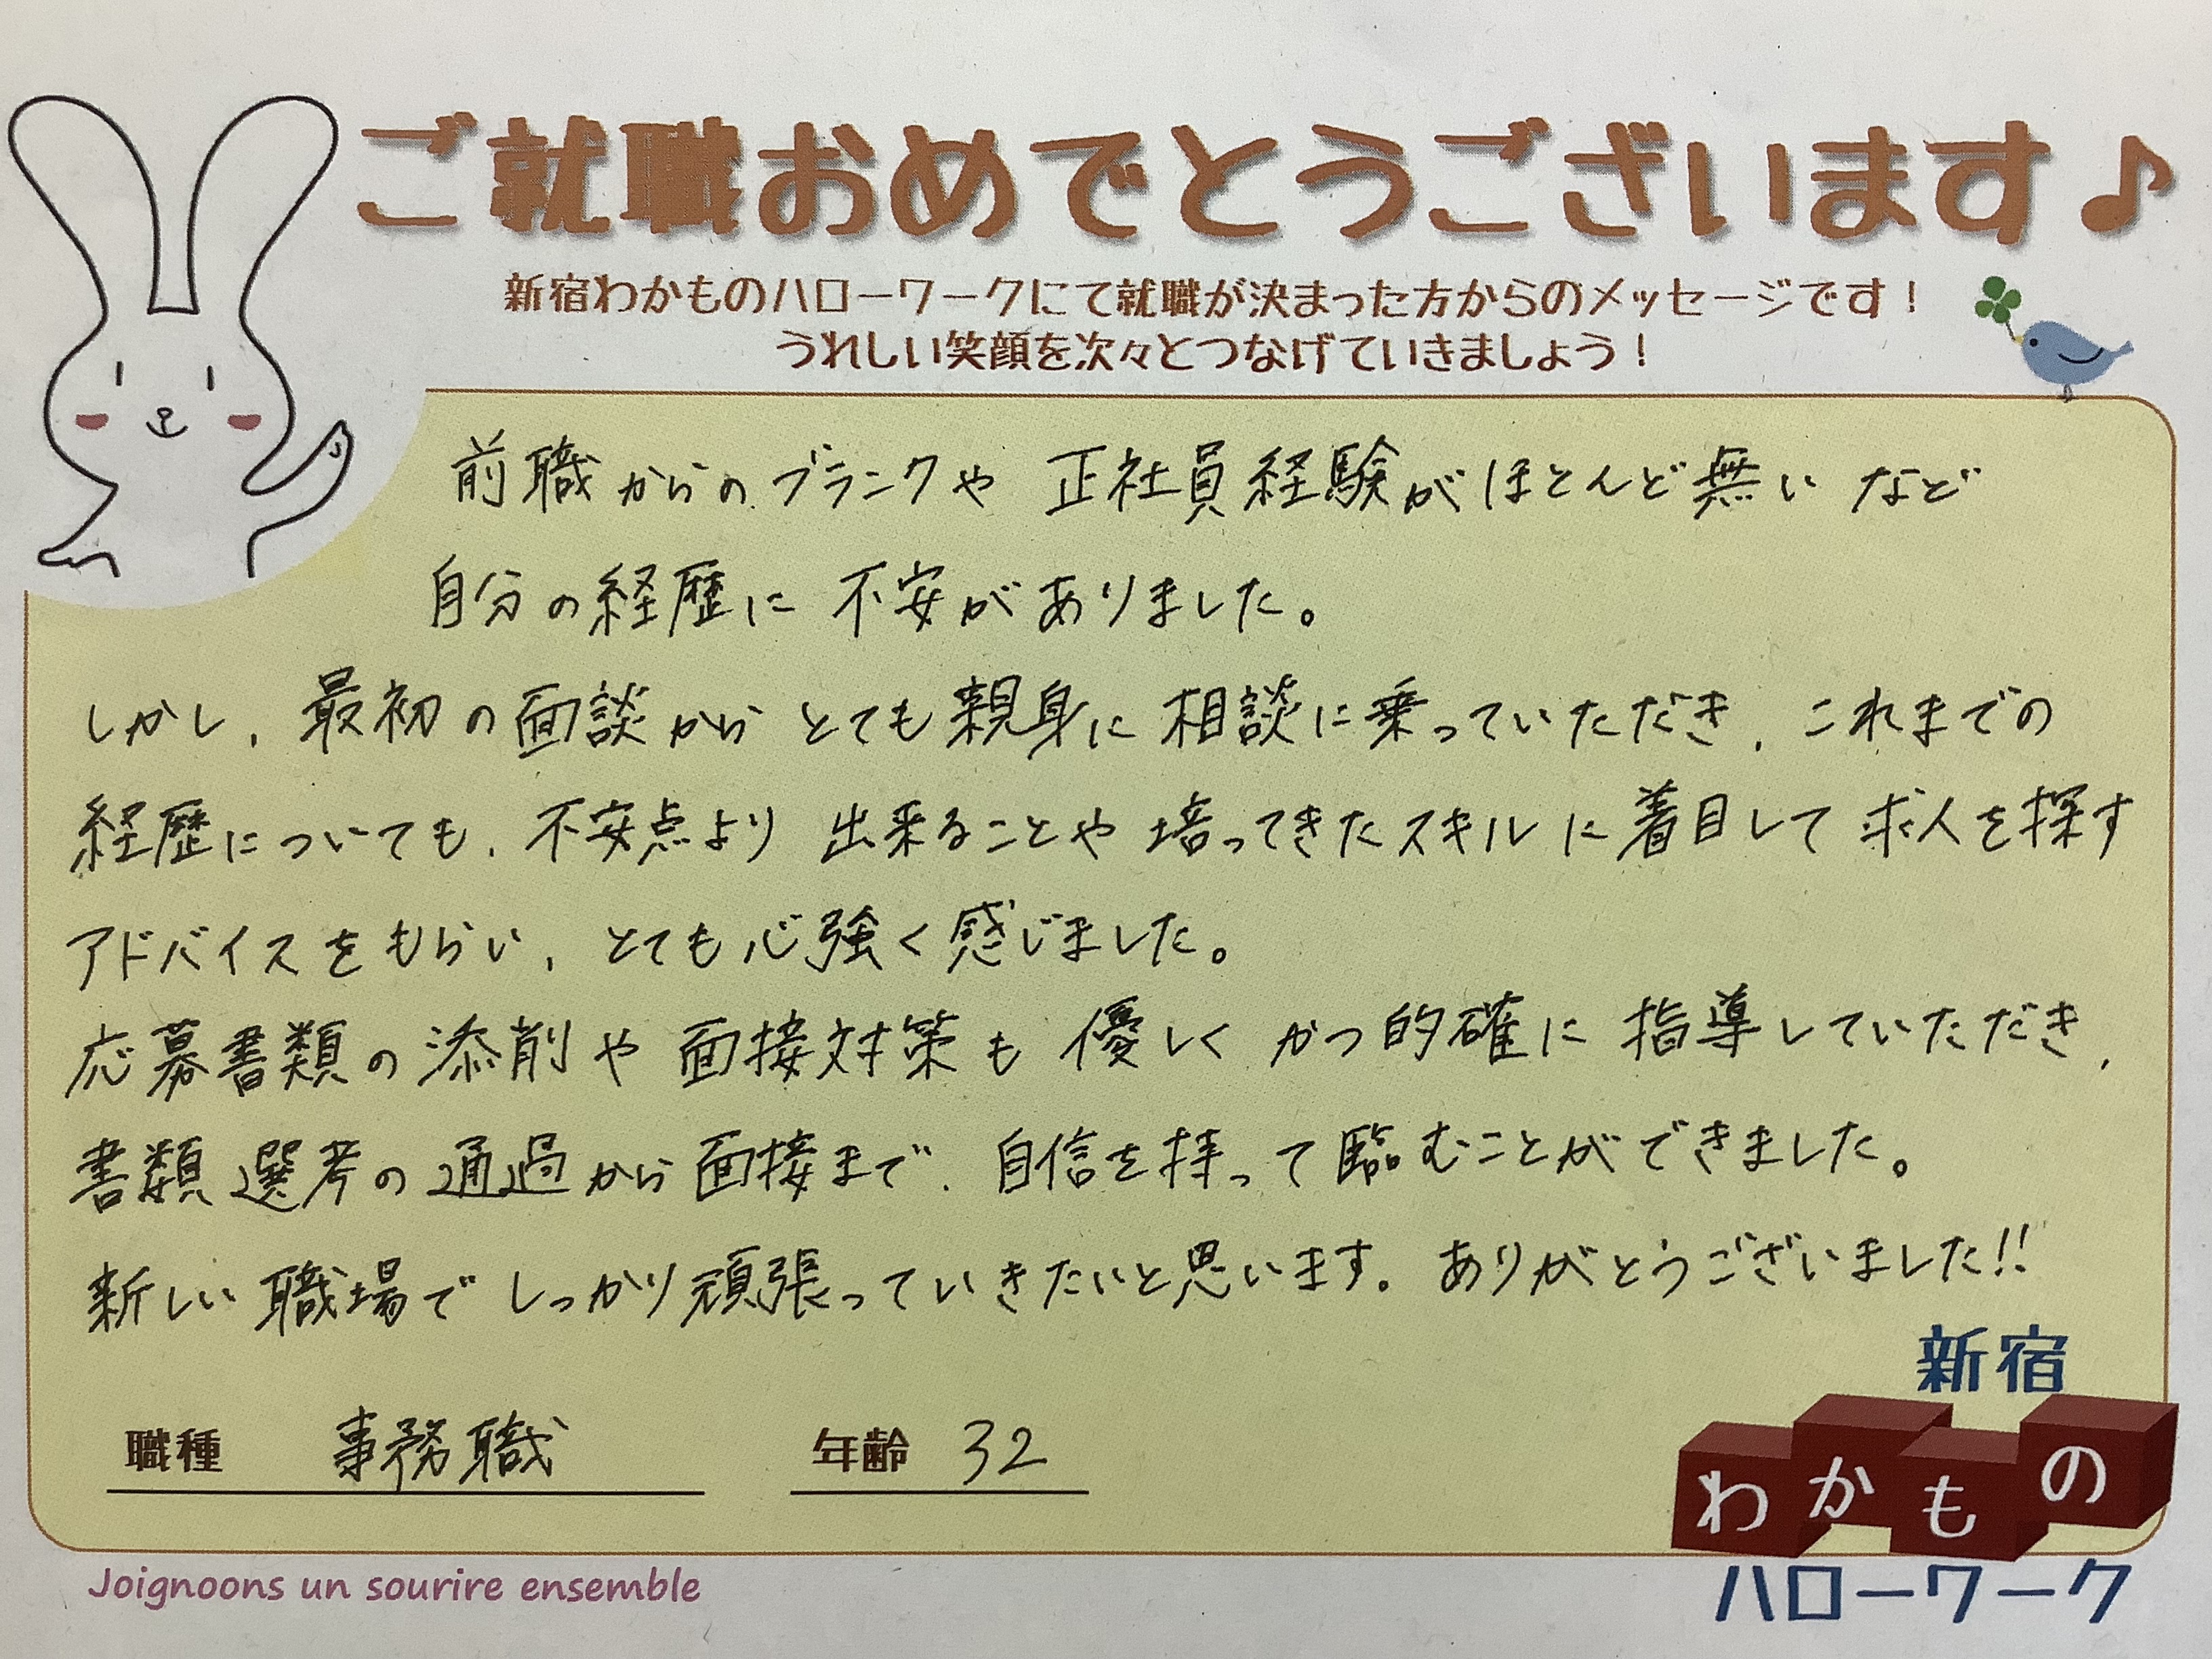 ご就職おめでとうございます♪
新宿わかものハローワークにて就職が決まった方からのメッセージです！
うれしい笑顔を次々とつなげていきましょう！
前職からのブランクや正社員経験がほとんど無いなど
自分の経歴に不安がありました。
しかし、最初の面談からとても親身に相談に乗っていただき、これまでの
経歴についても、不安点より出来ることや培ってきたスキルに着目して求人を探す
アドバイスをもらい、とても心強く感じました。
応募書類の添削や面接対策も優しくかつ的確に指導していただき、
書類選考の通過から面接まで、自信を持って臨むことができました。
新しい職場でしっかり頑張っていきたいと思います。ありがとうございました!!
職種 事務職 年齢 32
新宿
わかもの
ハローワーク
Joignoons un sourire ensemble